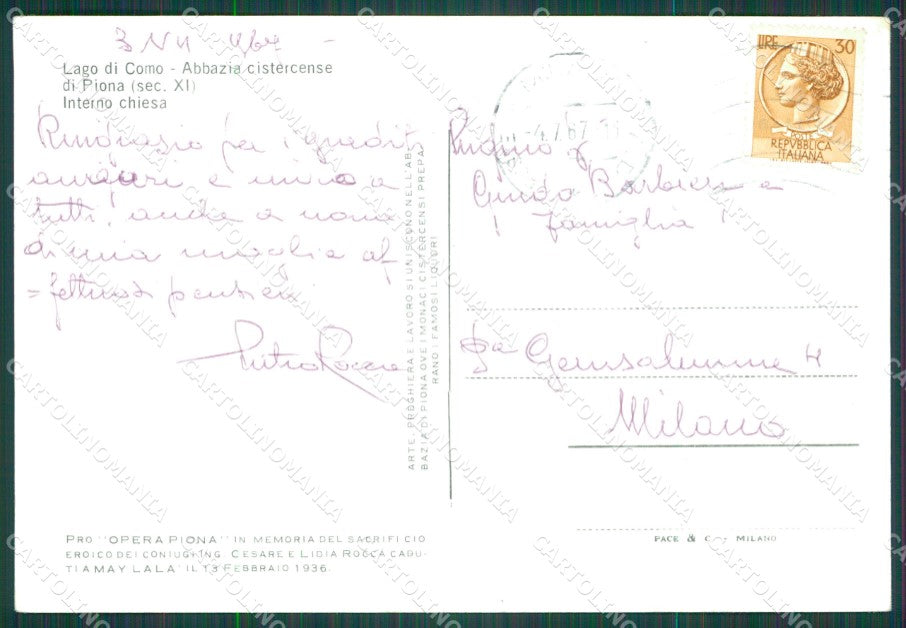 3 VII 1967 -
Lago di Como - Abbazia cistercense
di Piona (sec. XI)
Interno chiesa
per i graditi
auguri e a
tutti! anche a nome
di mia moglie af
=fettuosi pensieri
Pietro Rocca
ARTE, PREGHIERA E LAVORO SI UNISCONO NELL'AB-
BAZIA DI PIONA OVE I MONACI CISTERCENSI PREPA-
RANO I FAMOSI LIQUORI
PRO "OPERA PIONA" IN MEMORIA DEL SACRIFICIO
EROICO DEI CONIUGI ING. CESARE E LIDIA ROCCA CADU-
TI A MAY LALA' IL 13 FEBBRAIO 1936.
LIRE 30
POSTE
REPVBBLICA
ITALIANA
67
Guido Barbieri e
! famiglia !
4
Milano
PACE & C. MILANO
CARTOLINOMANIA